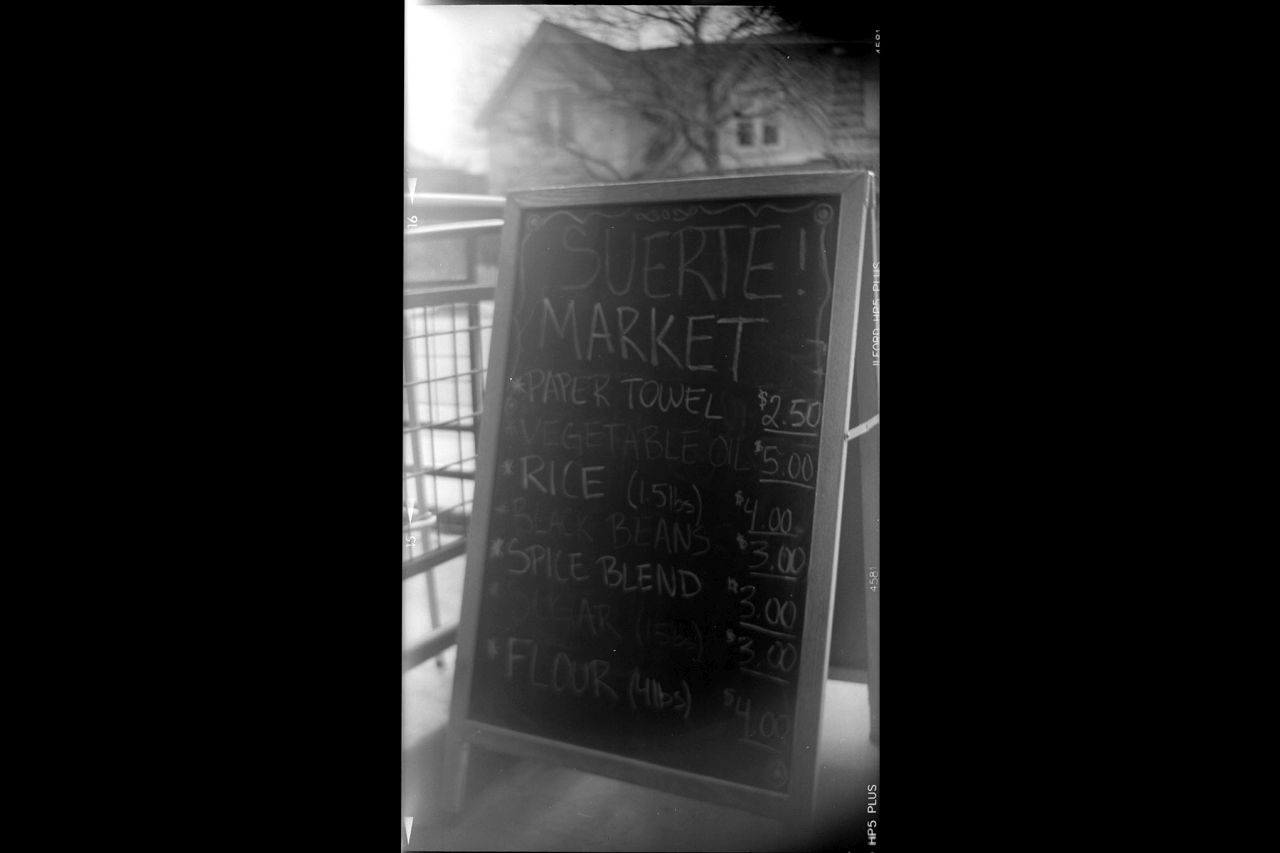 SUERTE!
MARKET
*PAPER TOWEL $2.50
*VEGETABLE OIL $5.00
*RICE (1.5lbs) $4.00
*BLACK BEANS $3.00
*SPICE BLEND $3.00
*SUGAR $3.00
*FLOUR (4lbs) $4.00
16
15
4581
ILFORD HP5 PLUS
4581
HP5 PLUS